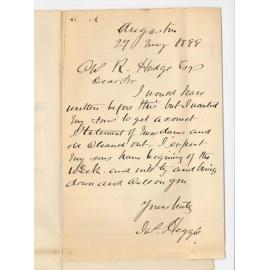 Augusta
27 May 1899
R. Hedge Esq
Dear Sir
I would have
written before this but I wanted
my sons to get a correct
statement of new dams and
old cleaned out. I expect
my sons home begining of the
week and will try and bring
down and call on you
Yours truly
Jas.